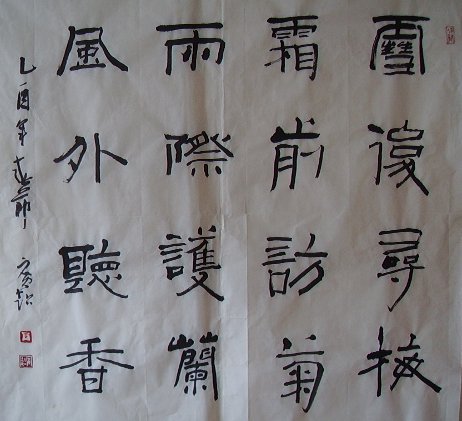 雪後尋梅
霜前訪菊
雨際護蘭
風外聽香
乙酉年